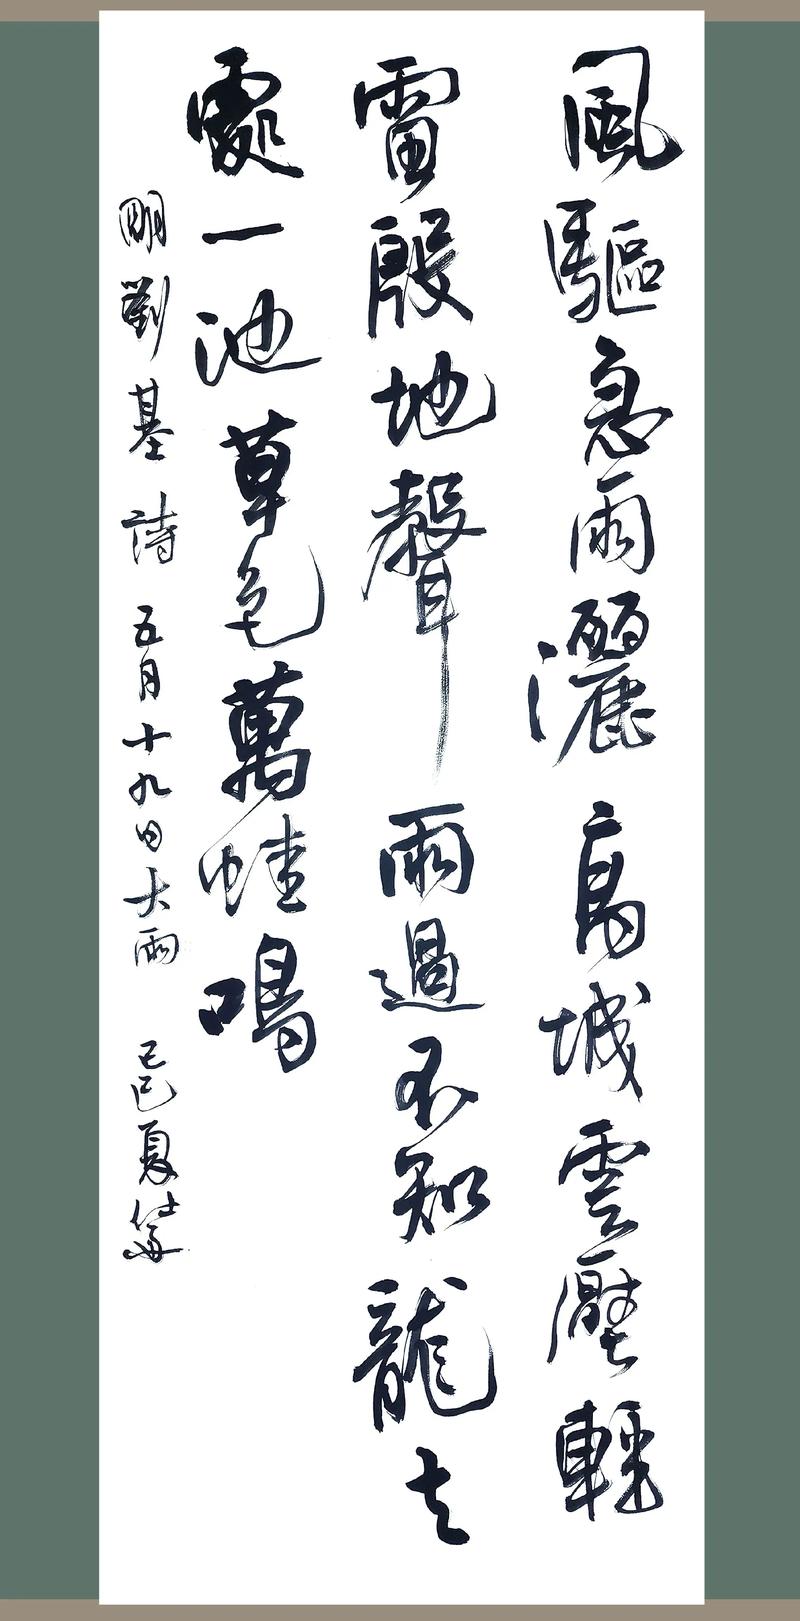 風驅急雨灑高城雲壓輕
雷殷地聲雨過不知龍去
處一池草色萬蛙鳴
明劉基詩五月十九日大雨己巳夏